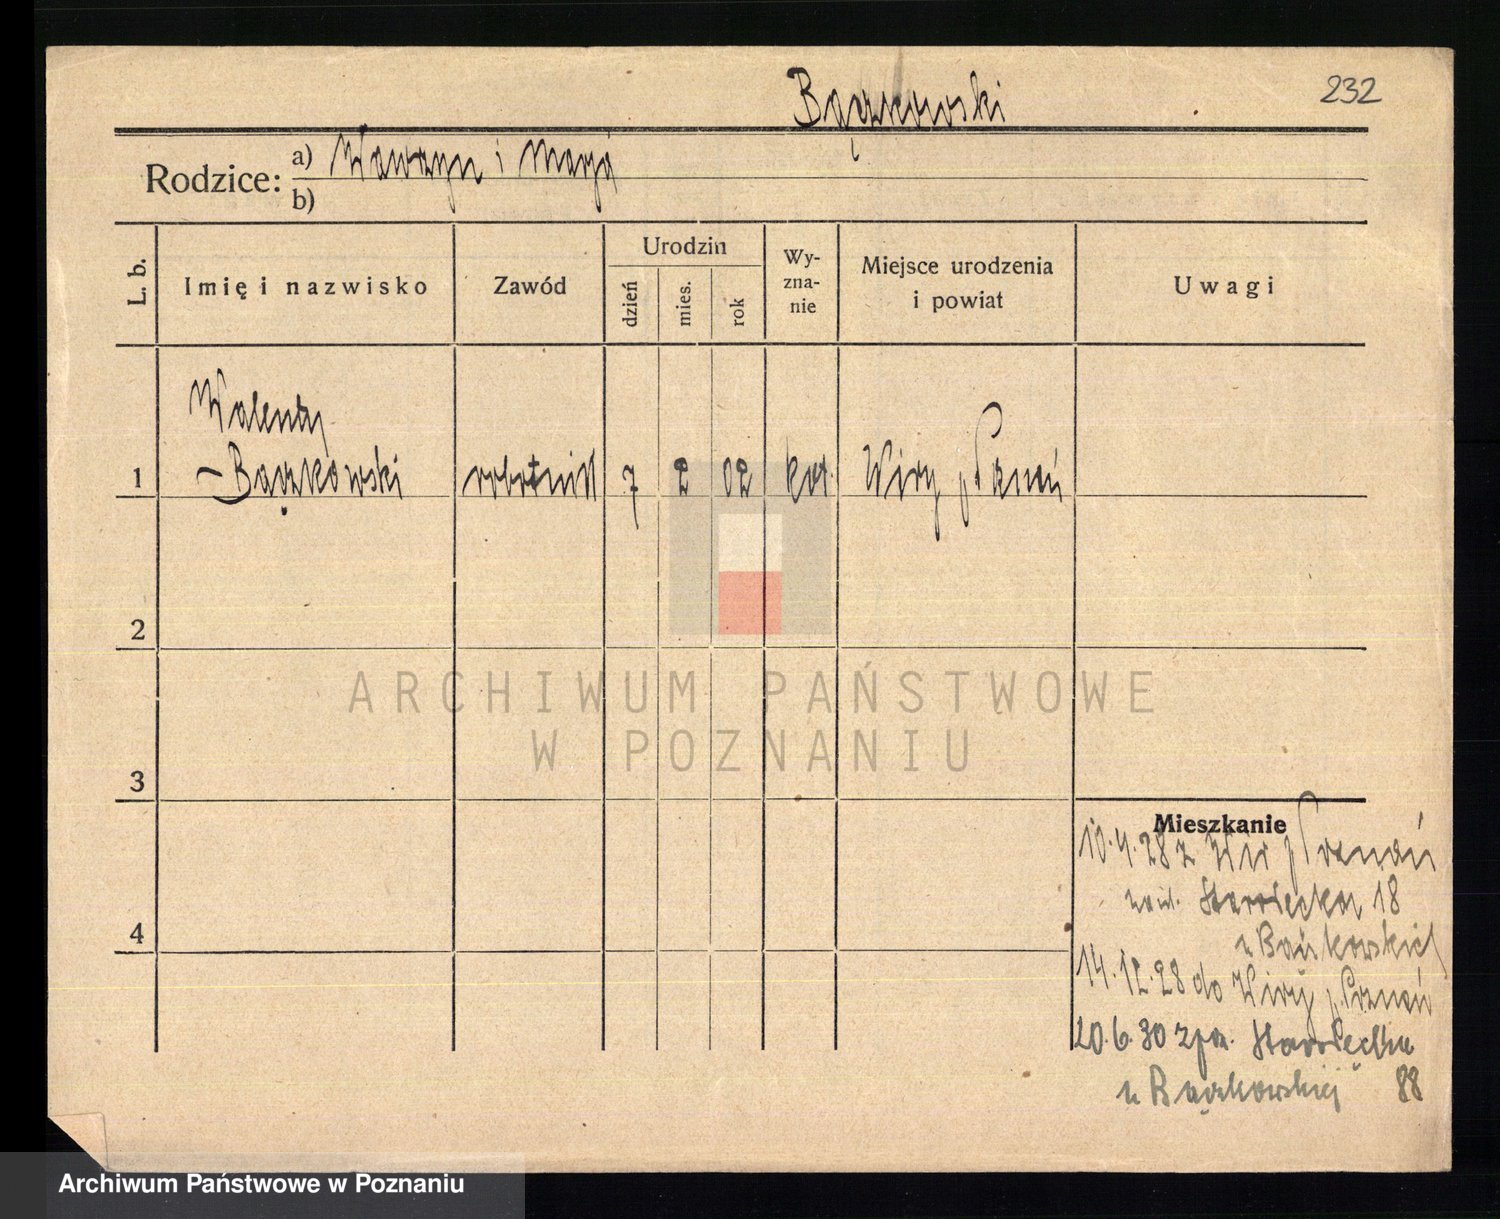 232
Bączkowski
Rodzice: a) Wawrzyn i Marja
b)
L. b.
Imię i nazwisko
Zawód
Urodzin
dzień
mies.
rok
Wy-
zna-
nie
Miejsce urodzenia
i powiat
Uwagi
Walenty
1 – Bączkowski robotnik 7 2 02 kat. Wiry p. Poznań
2
ARCHIWUM PAŃSTWOWE
W POZNANIU
3
Mieszkanie
10.4.28 z Wir p. Poznań
Starołęcka 18
u Bączkowskich
4
14.12.28 do Wiry p. Poznań
20.6.30 z Starołęcka
u Bączkowskiej 88
Archiwum Państwowe w Poznaniu